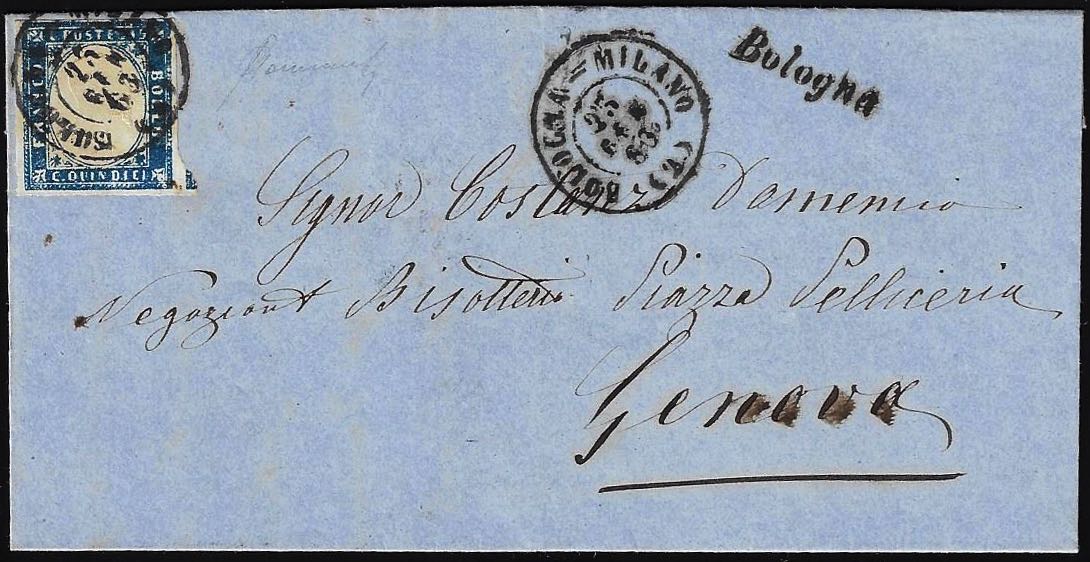 C. POSTE 15
FRANCO BOLLO
C. QUINDICI
BOLOGNA = MILANO (1)
25
63
Bologna
Signor Costanzo Domenico
Negoziant Bisotterie Piazza Pelliceria
Genova